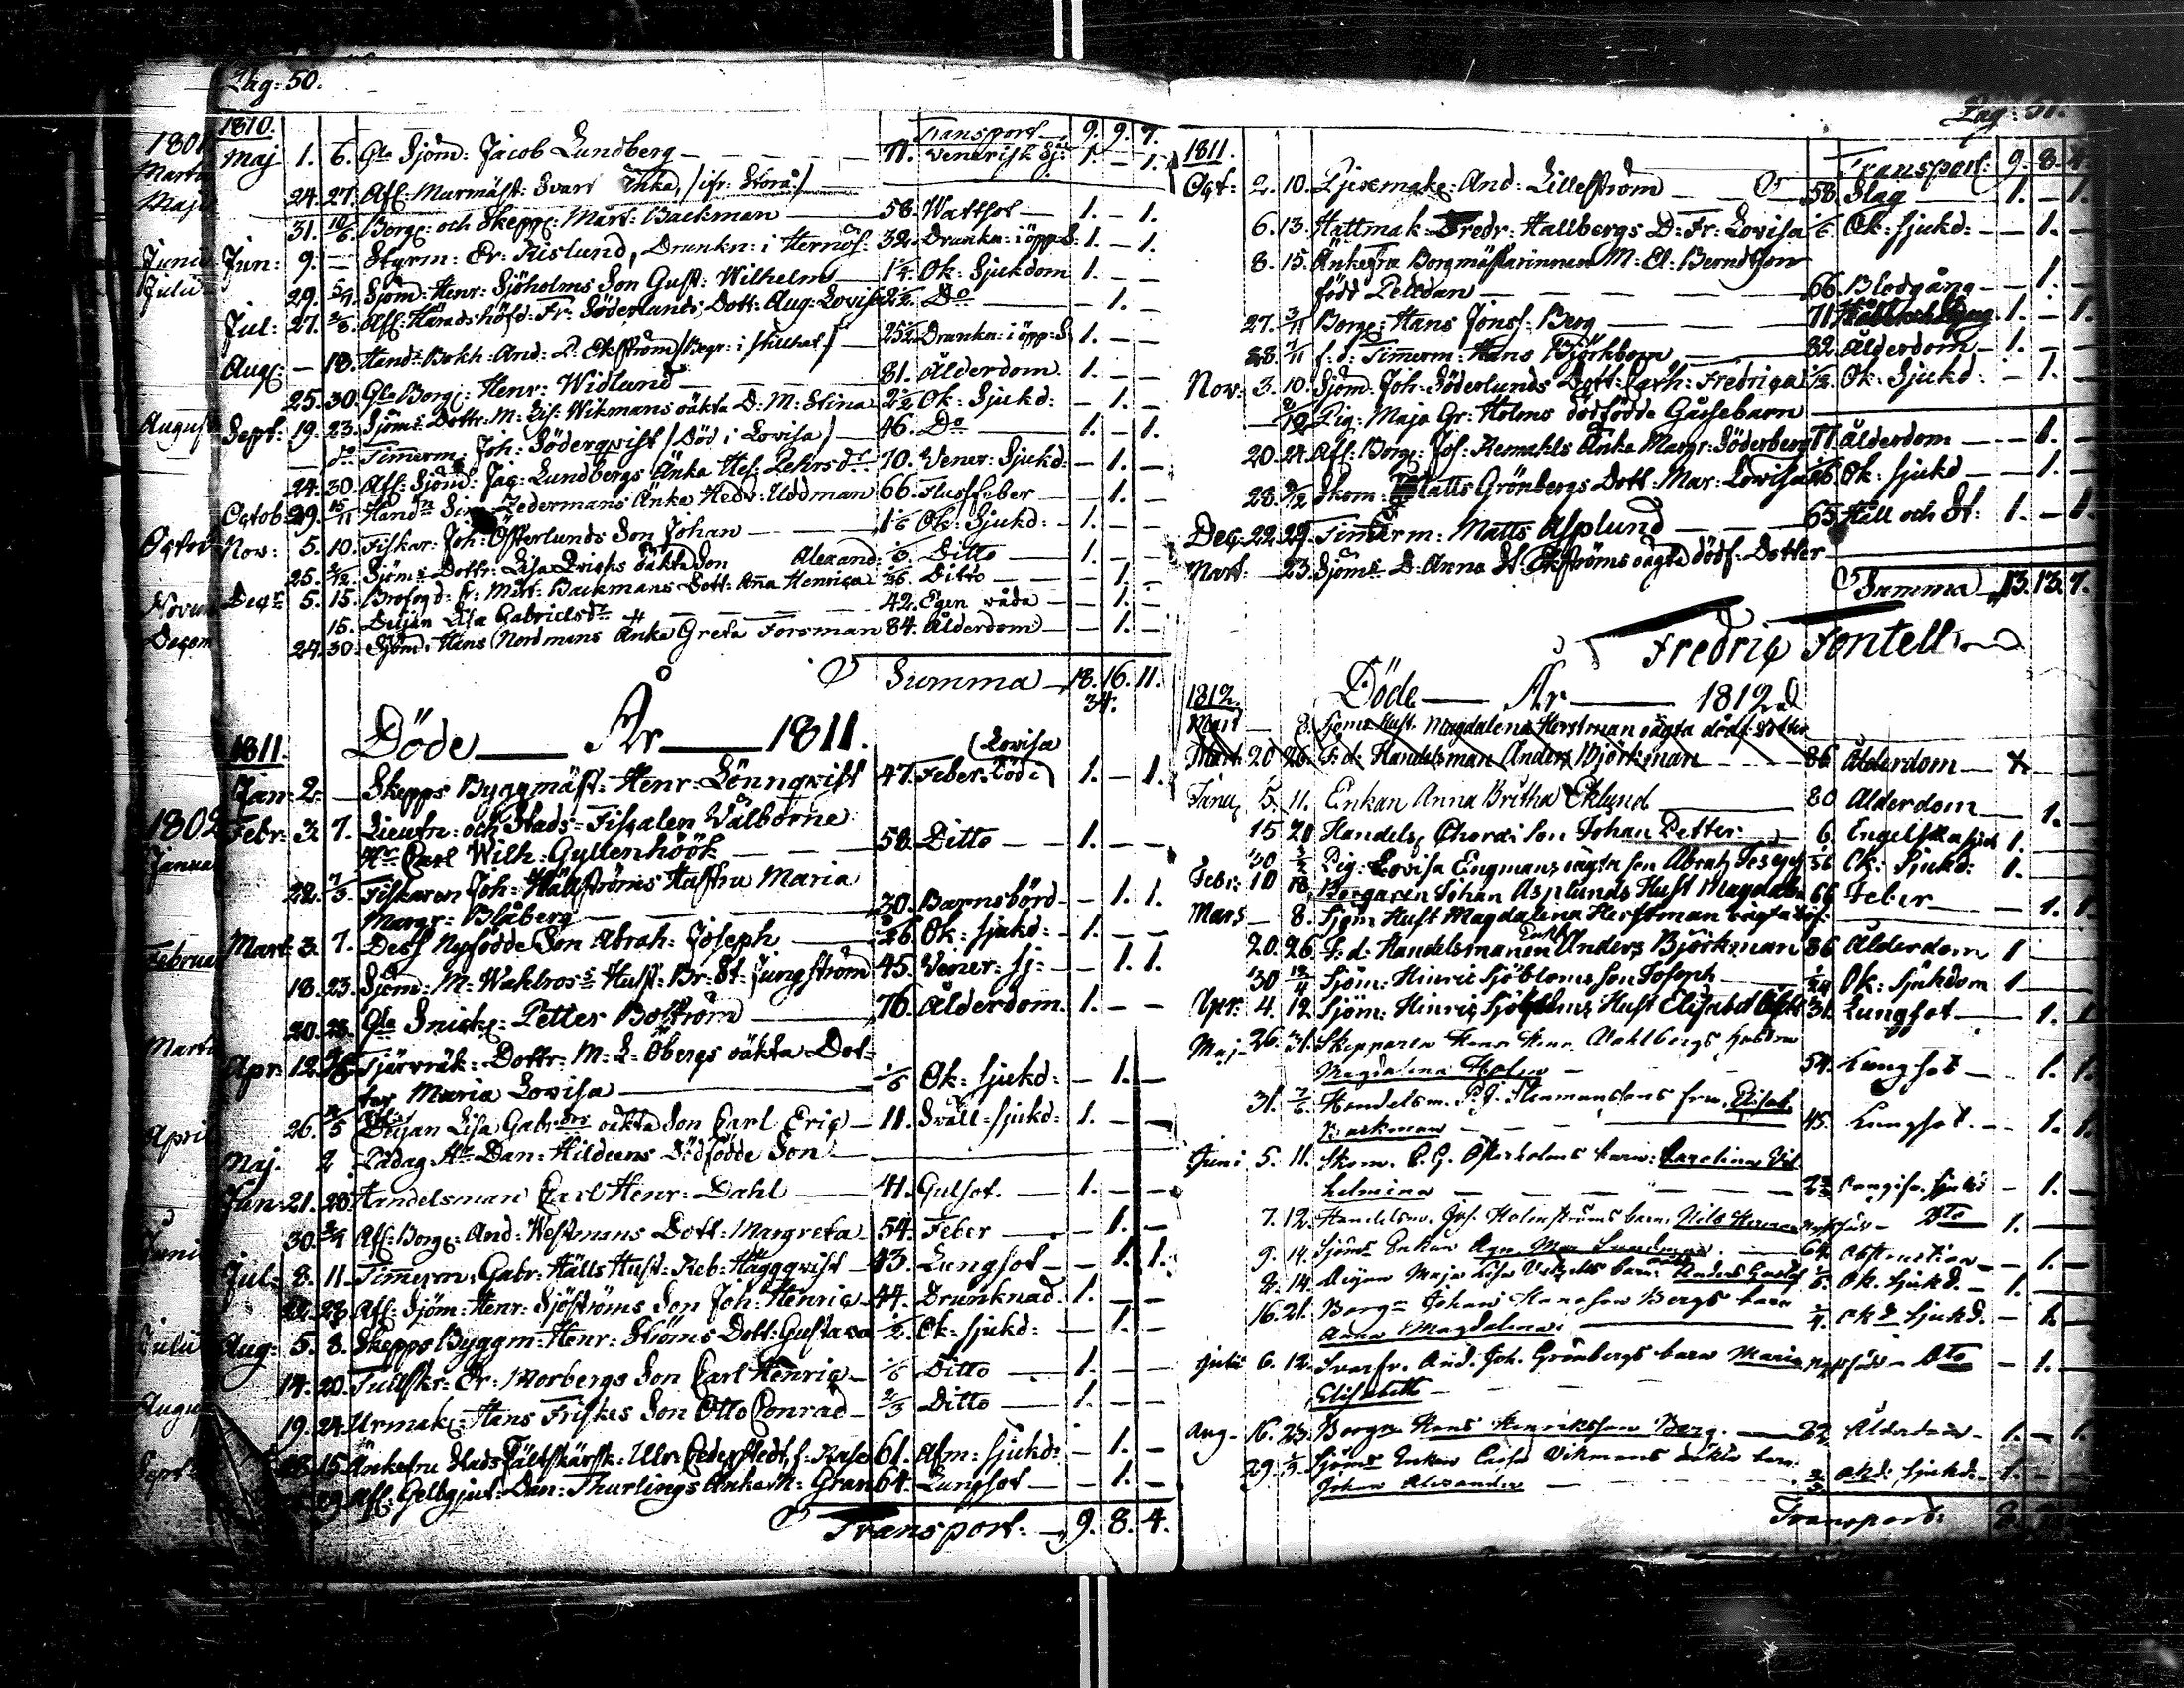 Pag: 50.
1810. Transport 9. 9. 7.
Maj 1. 6. Gle Sjöm: Jacob Lundberg 71. Venerisk Sj: 1. — 1.
24. 27. Afl: Murmäst: Svart Enka, /ifr: Storå:/
31. 10/6. Borg: och Skepp: Mårt: Backman 58. Wattsot 1. — 1.
Jun: 9. — Styrm: Er: Aislund, Drunkn: i Hernös: 32. Drunkn: i öpp: S: 1. — 1.
29. 5/7. Sjöm: Henr: Sjöholms Son Gust: Wilhelm Ok: Sjukdom 1. —
Jul: 27. 2/8. Afl: Häradshöfd: Fr: Söderlunds Dott: Aug: Lovisa Do — 1. —
Aug: — 18. Hands Bokh: And: P: Ekström /Begr: i stillhet/ Drunkn: i öpp: S 1. —
25. 30. Gle Borg: Henr: Widlund 81. Ålderdom 1. —
Sept: 19. 23. Sjöms Dottr: M: Lis: Wikmans oäkta D: M: Stina Ok: Sjukd: — 1. —
— do Timerm: Joh: Söderqvist /Död i Lovisa/ 46. Do 1. — 1.
24. 30. Afl: Sjöm: Jac: Lundbergs Änka Hel: Pehrsdr 70. Vener: Sjukd: — 1. —
Octob: 29. 15/11 Handn Zedermans Änka Hedv: Uddman 66. Flussfeber — 1. —
Nov: 5. 10. Fiskar: Joh: Österlunds Son Johan Ok: Sjukd: 1. —
25. 2/12. Sjöms Dottr: Lisa Erichs oäkta Son Alexand: Ditto 1. —
Decr 5. 15. Brofogd: Er: Mårt: Backmans Dott: Anna Henrica Ditto — 1. —
15. Deijan Lisa Gabrielsdr 42. Egen våda — 1. —
24. 30. Sjöm: Hans Nordmans Änka Greta Forsman 84. Ålderdom — 1. —
Summa 18. 16. 11.
34.
Döde År 1811.
1811.
Jan: 2. — Skepps Byggmäst: Henr: Lönnqvist 47. Feber. Död i (Lovisa) 1. — 1.
Febr: 3. 7. Lieutn: och Stads-Fiscalen Wälborne
Hr Carl Wilh: Gyllenhöök 58. Ditto 1. —
22. 1/3 Fiskaren Joh: Hällströms Hustru Maria
Margr: Blåberg 30. Barnsbörd — 1. 1.
Mart: 3. 7. Dess Nyfödde Son Abrah: Joseph Ok: sjukd: 1. —
18. 23. Sjöm: M: Wahlroos's Hust: Br: St: Ljungström 45. Vener: Sj: — 1. 1.
20. 28. Gle Snick: Petter Boström 76. Ålderdom. 1. —
Apr: 12. Tjärvräk: Dottr: M: L: Öbergs oäkta Dot-
ter Maria Lovisa Ok: sjukd: — 1. —
26. 4/5 Deijan Lisa Gabr:drs oäkta Son Carl Eric 11. Swäll-sjukd: 1. —
Maj: 2 Pädag Hr Dan: Hildeens Dödfödde Son
Jun: 21. 23 Handelsman Carl Henr: Dahl 41. Gulsot. 1. —
30. Afl: Borg: And: Westmans Dott: Margreta 54. Feber — 1. —
Jul: 8. 11 Timerm: Gabr: Hälls Hust: Reb: Häggqvist 43. Lungsot — 1. 1.
Afl: Sjöm: Henr: Sjöströms Son Joh: Henric 44. Drunknad. 1. —
Aug: 5. 8. Skepps Byggm: Henr: Ströms Dott: Gustava Ok: sjukd: — 1. —
14. 20. Tullskr: Er: Morbergs Son Carl Henric Ditto 1. —
19. 24. Urmak: Hans Friskes Son Otto Conrad 2/3 Ditto 1. —
15. Änkefru Stads Fältskärsk: Ulr: Cederstedt, f: Rase 61. Afm: sjukd: — 1. —
29 Afl: Gelbgjut: Dan: Thurlings Änka M: Gran 64. Lungsot — 1. —
Transport: 9. 8. 4.
1801
Martii
Maji
Junii
Julii
August
Octob
Novem
Decem
1802
Janua
Februa
Martii
April
Junii
Julii
Augu
Sept
Pag: 51.
1811. Transport: 9. 8. 4.
Oct: 2. 10. And: Lilleström 58. Slag 1. — 1.
6. 13. Hattmak: Fredr: Hallbergs D: Fr: Lovisa Ok: sjukd: — 1. —
8. 15. Änkefru Borgmästarinnan M: El: Berndtson
född Pelldan 66. Blodgång — 1. —
27. 3/11 Borg: Hans Jönss: Berg 71 1. — 1.
28. 7/11 f. d: Timerm: Hans Björkbom 82. Ålderdom 1. —
Nov: 3. 10. Sjöm: Joh: Söderlunds Dott: Cath: Fredrica Ok: Sjukd: — 1. —
Pig: Maja Gr: Holms dödfödde Gåssebarn
20. 24. Afl: Borg: Joh: Änka Margr: Söderberg 77 Ålderdom — 1. —
28. 8/12 Skom: Matts Grönbergs Dott: Mar: Lovisa Ok: sjukd — 1. —
Dec: 22. 29. Timerm: Matts Asplund 65. Håll och St: 1. — 1.
Mart: — 23. Sjöms D: Anna St: Ekströms oägta dödf: Dotter
Summa 13. 13. 7.
Fredric Fontell
1812. Döde År 1812
Mart — 8. Sjöms Hust. Magdalena Herstman oägta dödf: Dotter
Mart: 20 26. F:d: Handelsman Anders Björkman 86 Ålderdom
Janu: 5. 11. Enkan Anna Britha Eklund 80 Ålderdom — 1.
15 20 Handels: Chorai Son Johan Petter 6 Engelska sjuk 1.
30 Pig: Lovisa Engmans oägta son Abrah: Ok: Sjukd: 1.
Febr: 10 18 Borgaren Johan Asplunds Hust Magdalena 66 Feber — 1. 1.
Mars — 8. Sjöm: Hust Magdalena Herstman oägta döf: Dotter
20. 26 F: d: Handelsmannen Anders Björkman 86 Ålderdom 1
30 12/4 Sjöm: Hinric Sjöbloms son Joseph Ok: Sjukdom 1
Apr: 4. 12. Sjöm: Hinric Sjöbloms Hust Elisabet 31. Lungsot — 1. 1.
Maj 26. 31. Skepparen Henr. Wahlbergs hustru
Magdalena Holm 54. Lungsot — 1. 1.
31. 7/6. Handelsm. P. J. Stenmanssons fru Elisab.
Backman 45. Lungsot. — 1. 1.
Juni 5. 11. Skom. C. G. Österholms barn: Carolina Vil
helmina sjukd — 1. —
7. 12. Handelsm. Joh. Holmströms barn Nils Herman Nyssföds Dto 1. —
9. 14. Sjöms Enkan Agn. Mar. Sundman 64. Obstruction — 1. —
8. 14. Deijan Maja Lisa barn: Anders Gustaf Ok. Sjukd. — 1. —
16. 21. Borgn Johan Hansson Bergs barn
Anna Magdalena Okd sjukd. — 1.
Julii 6. 12. Svarfv. And. Joh. Grönbergs barn Maria Dto — 1. —
Elisabeth
Aug. 16. 23. Borgn Hans Henriksson Berg. Ålderdom 1. — 1.
29. Sjöms Enkan Caisa Vikmans oäkta barn
Johan Alexander okd: sjukd. 1. —
Transport: